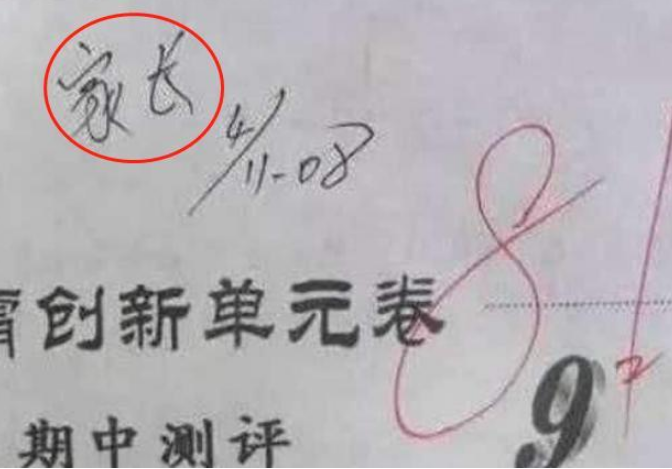 家长
4/11-08
81
创新单元卷
期中测评
9